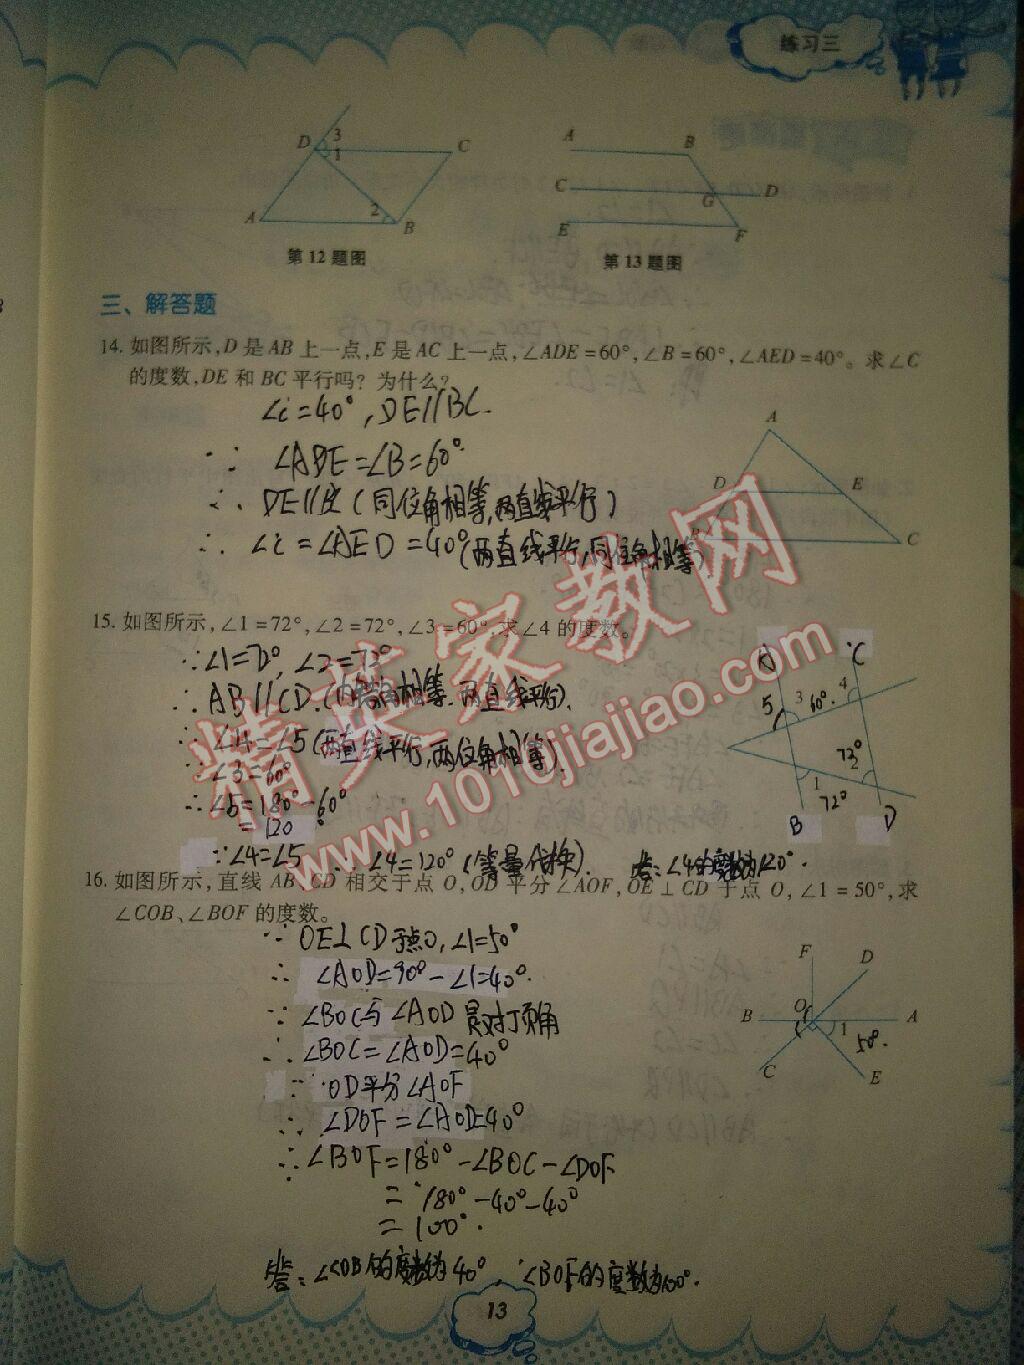 练习三
D 3 1 C A 2 B
A B C G D E F
第12题图
第13题图
三、解答题
14. 如图所示,D是AB上一点,E是AC上一点,∠ADE=60°,∠B=60°,∠AED=40°。求∠C
的度数,DE和BC平行吗?为什么?
∠C=40°,DE//BC.
∵ ∠ADE=∠B=60°.
∴ DE//BC(同位角相等,两直线平行)
∴ ∠C=∠AED=40°(两直线平行,同位角相等)
A D E B C
15. 如图所示,∠1=72°,∠2=72°,∠3=60°,求∠4的度数。
∵∠1=72°,∠2=72°
∴AB//CD.(内错角相等.两直线平行).
∴∠4=∠5(两直线平行,同位角相等).
∵∠3=60°
∴∠5=180°-60°
=120°
∵∠4=∠5 ∴∠4=120°(等量代换). 答:∠4的度数为120°.
A C 5 3 60° 4 72° 2 1 72° B D
16. 如图所示,直线AB、CD相交于点O,OD平分∠AOF,OE⊥CD于点O,∠1=50°,求
∠COB、∠BOF的度数。
∵ OE⊥CD于点O,∠1=50°
∴ ∠AOD=90°-∠1=40°.
∵ ∠BOC与∠AOD是对顶角
∴ ∠BOC=∠AOD=40°
∵ OD平分∠AOF
∴ ∠DOF=∠AOD=40°
∴ ∠BOF=180°-∠BOC-∠DOF
=180°-40°-40°
=100°.
答:∠COB的度数为40°,∠BOF的度数为100°.
F D B O 1 A 50° C E
13
精英家教网
www.1010jiajiao.com